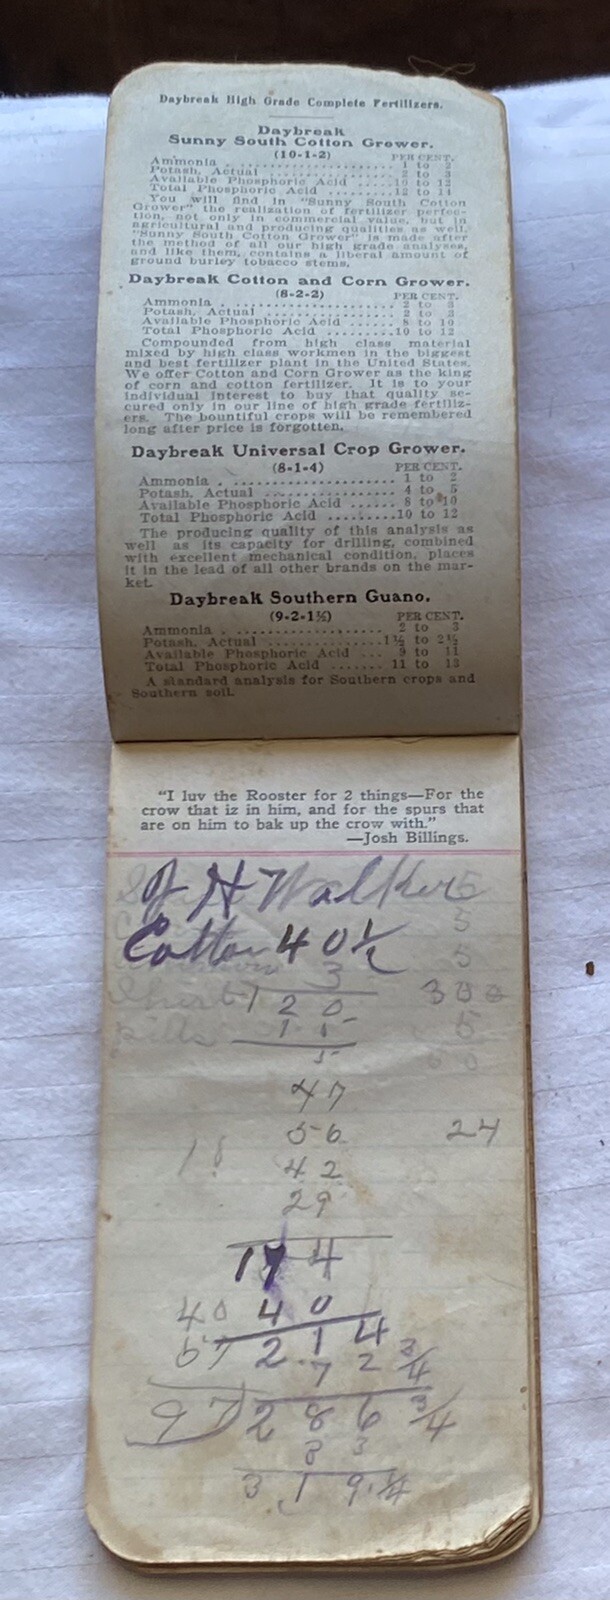 Daybreak High Grade Complete Fertilizers.
Daybreak
Sunny South Cotton Grower.
(10-1-2) PER CENT.
Ammonia ........................ 1 to 2
Potash, Actual ................. 2 to 3
Available Phosphoric Acid .....10 to 12
Total Phosphoric Acid .........12 to 14
You will find in "Sunny South Cotton
Grower" the realization of fertilizer perfec-
tion, not only in commercial value, but in
agricultural and producing qualities as well.
"Sunny South Cotton Grower" is made after
the method of all our high grade analyses,
and like them, contains a liberal amount of
ground burley tobacco stems.
Daybreak Cotton and Corn Grower.
(8-2-2) PER CENT.
Ammonia ........................ 2 to 3
Potash, Actual ................. 2 to 3
Available Phosphoric Acid ...... 8 to 10
Total Phosphoric Acid .........10 to 12
Compounded from high class material
mixed by high class workmen in the biggest
and best fertilizer plant in the United States.
We offer Cotton and Corn Grower as the king
of corn and cotton fertilizer. It is to your
individual interest to buy that quality se-
cured only in our line of high grade fertiliz-
ers. The bountiful crops will be remembered
long after price is forgotten.
Daybreak Universal Crop Grower.
(8-1-4) PER CENT.
Ammonia ........................ 1 to 2
Potash, Actual ................. 4 to 5
Available Phosphoric Acid ...... 8 to 10
Total Phosphoric Acid .........10 to 12
The producing quality of this analysis as
well as its capacity for drilling, combined
with excellent mechanical condition, places
it in the lead of all other brands on the mar-
ket.
Daybreak Southern Guano.
(9-2-1½) PER CENT.
Ammonia ........................ 2 to 3
Potash, Actual ................. 1½ to 2½
Available Phosphoric Acid ... 9 to 11
Total Phosphoric Acid ....... 11 to 13
A standard analysis for Southern crops and
Southern soil.
"I luv the Rooster for 2 things—For the
crow that iz in him, and for the spurs that
are on him to bak up the crow with."
—Josh Billings.
H Walker 5
5
Cotton 40½
5
3
Shirt 120
pills 5
47
56 24
18 42
29
174
40 40
57 214
72¾
97 286¾
33
319